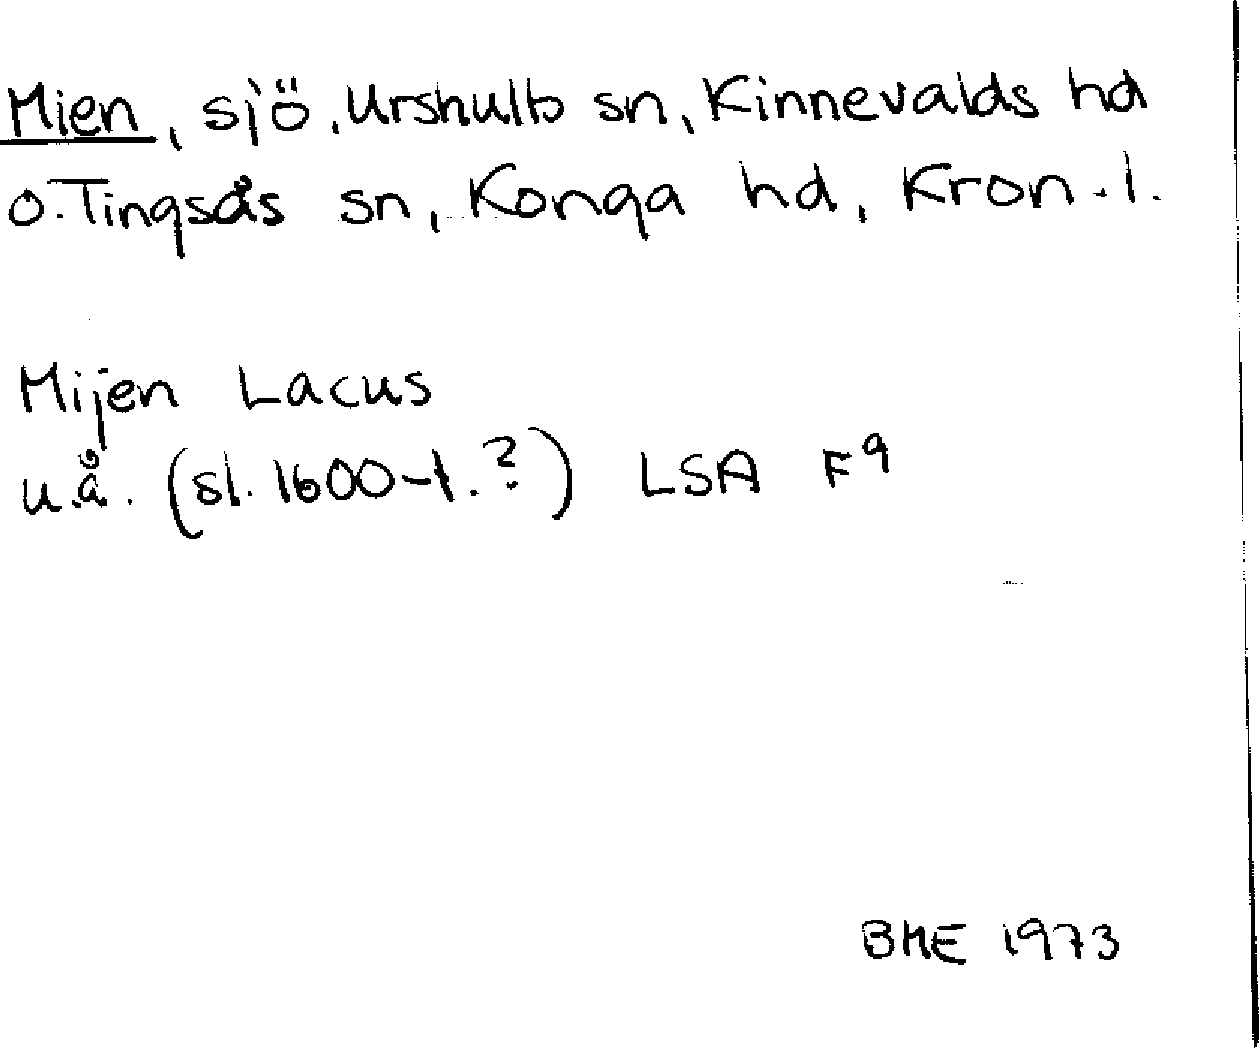 Mien, sjö, Urshults sn, Kinnevalds hd
o. Tingsås sn, Konga hd, Kron. l.
Mijen Lacus
u.å. (sl. 1600-t.?) LSA F9
BME 1973